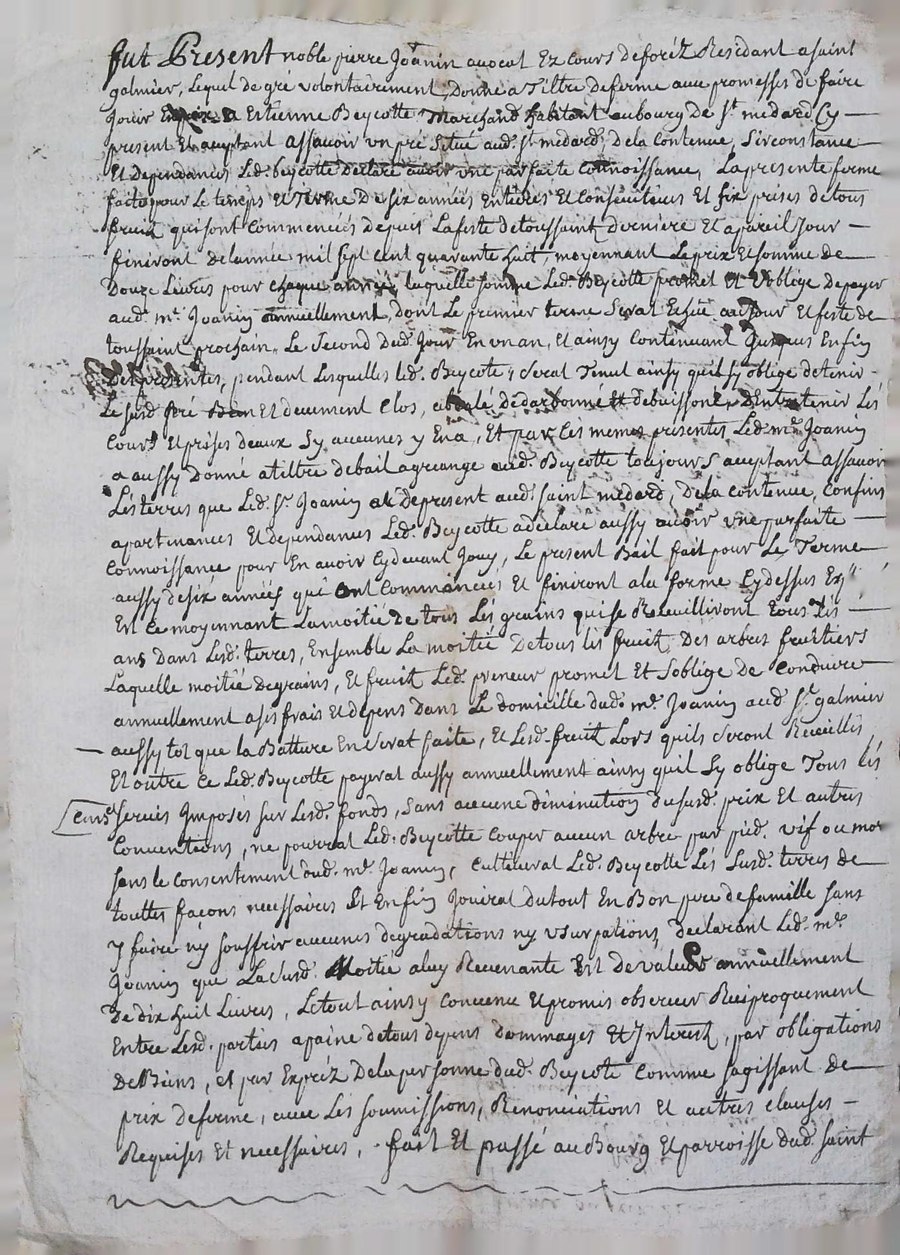 fut Present noble pierre Joanin avocat Ez cours deforéz Residant a saint
galmier, Lequel de gré volontairement, Donne a Tiltre deferme avec promesses de faire
Jouir a Estienne Beycotte Marchand habitant aubourg de St. medard Cy
present Et acceptant assavoir un pré situé aud. St. medard, dela contenue, sirconstance
Et Dependances Led. beycotte declare avoir une parfaite connoissance, La presente ferme
faite pour Le temps et Terme De six années Entieres Et Consécutives Et six prises detous
fruit qui sont Commencées depuis Lafeste detoussaint derniere Et apareil Jour
finiront delannée mil sept cent quarante huit, moyennant Le prix Et somme de
Douze Livres pour chaque année, laquelle somme Led. Beycotte promet Et soblige depayer
aud. me. Joanin annuellement, dont Le premier terme Serat Echue au Jour Et feste de
toussaint prochain, Le Second dud. Jour En un an, Et ainsy Continuant Jusques Enfin
Des presentes, pendant Lesquelles led. Beycote y Serat Tenut ainsy quil sy oblige detenir
Le susd. pré Bien Et deuement Clos, Et debuissoné, Dentretenir Les
Cours Et prises deaux sy aucunes y En a, Et par Les memes presentes Led. me. Joanin
a aussy donné a tiltre debail agreange aud. Beycotte toujours acceptant assavoir
Les terres que Led. Sr. Joanin a depresent aud. saint medard, Dela contenue, Confins
apartenances Et dependances Led. Beycotte adeclare aussy avoir une parfaite
Connoissance pour En avoir Cydevant Jouy, Le present Bail fait pour Le Terme
aussy desix années qui ont Commancées Et finiront ala forme Cydessus
En Ce moyennant La moitié de tous Les grains qui se Recuilliront tous Les
ans Dans Lesd. terres, Ensemble La moitié Detous les fruit Des arbres fruitiers
Laquelle moitié degrains, Et fruit Led. preneur promet Et soblige De Conduire
annuellement ases frais Et depens Dans Le domicille dud. me. Joanin aud. St. galmier
aussy tot que la Batture En Serat faite, Et Lesd. fruit Lors quils seront Recuillis
Et outre Ce Led. Beycotte payerat aussy annuellement ainsy quil sy oblige Tous Les
Cens et servis Imposés sur Lesd. fonds, sans aucune diminution dususd. prix Et autres
Conventions, ne pourrat Led. Beycotte Couper aucun arbre par pied. vif ou mor
sans le consentement dud. me. Joanin, Cultiverat Led. Beycotte Les susd. terres de
touttes façons necessaires Et Enfin Jouirat dutout En Bon pere defamille sans
y faire ny souffrir aucunes degradations ny usurpations, Declarant Led. me.
Joanin que La susd. Moitié aluy Revenante Est de valeur annuellement
De dix huit Livres, Letout ainsy Convenu Et promis observer Reciproquement
Entre Lesd. parties apaine detous depens dommages Et Interest, par obligations
De Biens, et par Expréz Dela personne dud. Beycote Comme sagissant de
prix deferme, avec Les soumissions, Renonciations Et autres clauses
Requises Et necessaires, fait Et passé au Bourg Et parroisse dud. saint